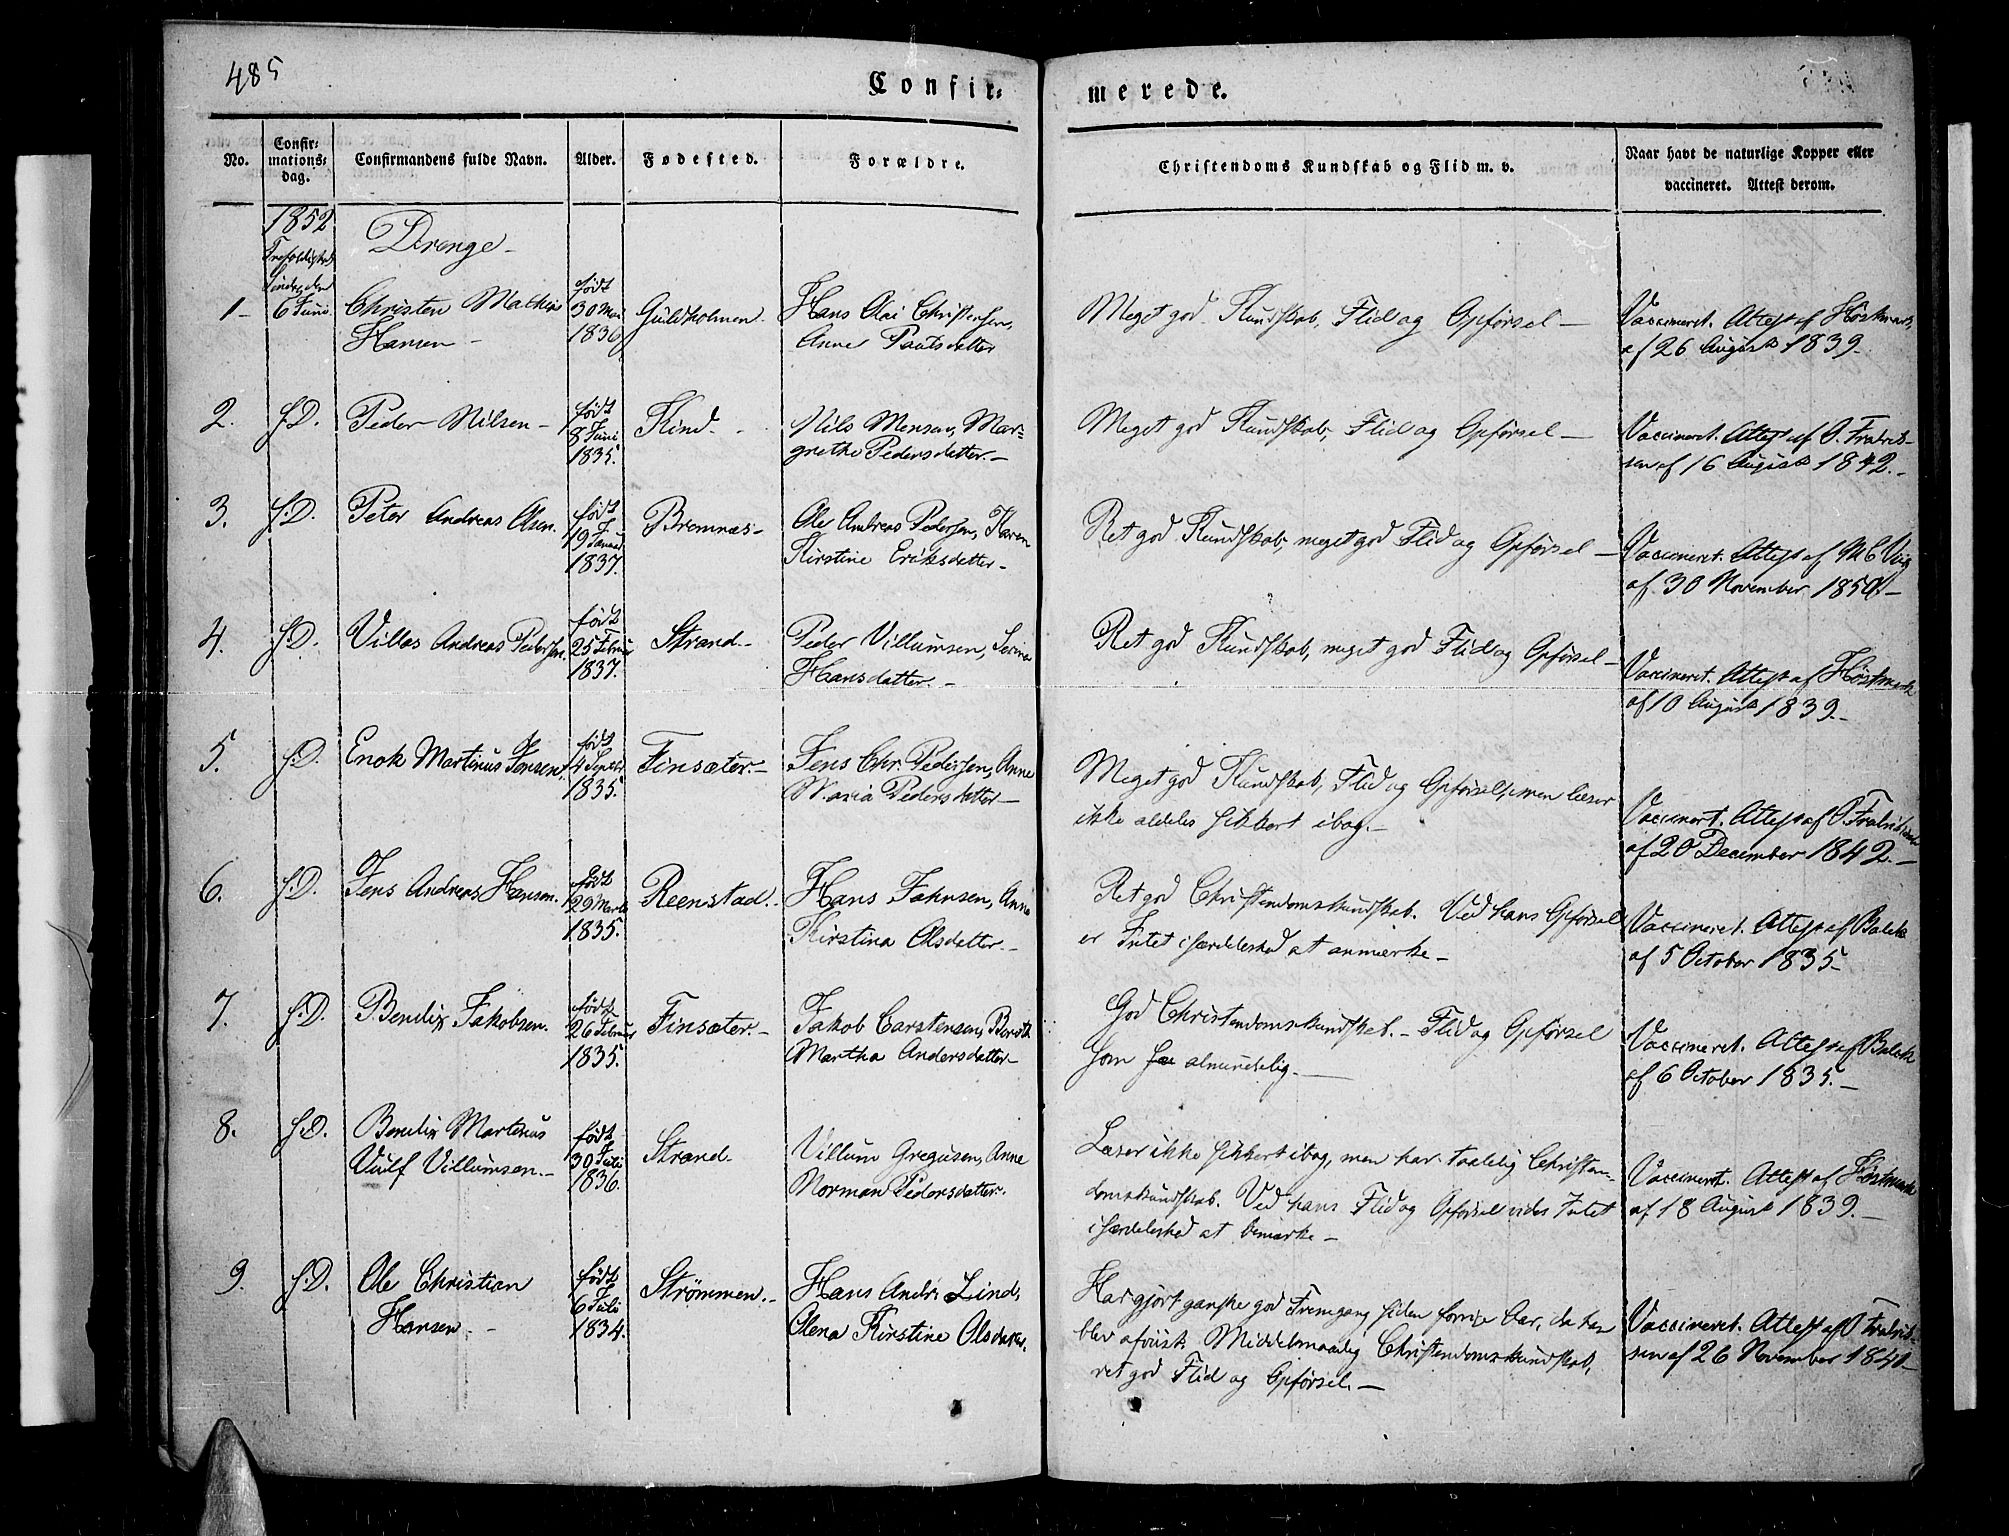 485
Confir-
merede.
No.
Confir-
mations-
dag.
Confirmandens fulde Navn.
Alder.
Fødested.
Forældre.
Christendoms Kundskab og Flid m. v.
Naar havt de naturlige Kopper eller
vaccineret. Attest derom.
1852
Drenge -
1- 6 Juni Christen Mathias
Hansen -
født
30 Mai
1836
Guldholmen.
Hans Olai Christensen,
Anne Paulsdatter
Meget god Kundskab, Flid og Opførsel -
Vaccineret. Attest af Höstmark
af 26 August 1839.
2. s.D. Peder Nilsen -
født
8 Juni
1835.
Kind. -
Nils Monsen, Mar-
grethe Pedersdatter. -
Meget god Kundskab, Flid og Opførsel -
Vaccineret. Attest af P. Fredrik-
sen af 16 August 1842. -
3. s.D. Peter Andreas Olsen.
født
19 Januar
1837.
Bremnæs -
Ole Andreas Pedersen, Karen
Kirstine Eriksdatter -
Ret god Kundskab, meget god Flid og Opførsel -
Vaccineret. Attest af M C Viig
af 30 November 1850. -
4. s.D. Villas Andreas Pedersen.
født
25 Februar
1837.
Strand. -
Peder Villumsen,
Hansdatter. -
Ret god Kundskab, meget god Flid og Opførsel -
Vaccineret. Attest af Höstmark
af 10 August 1839. -
5. s.D. Enok Martinus Jensen.
født
4 Septbr
1835.
Finsæter. -
Jens Chr. Pedersen, Anne
Maria Pedersdatter -
Meget god Kundskab, Flid og Opførsel, men læser
ikke aldeles sikkert ibog. -
Vaccineret. Attest af P. Fredriksen
af 20 December 1842. -
6. s.D. Jens Andreas Hansen.
født
29 Marts
1835.
Reenstad. -
Hans Johnsen, Anne
Kirstina Olsdatter. -
Ret god Christendomskundskab. Ved hans Opførsel
er Intet i særdeleshed at anmærke -
Vaccineret. Attest af Balck
af 5 October 1835 -
7. s.D. Bendix Jakobsen.
født
26 Februar
1835.
Finsæter. -
Jakob Carstensen, Bereth
Martha Andersdatter -
God Christendomskundskab. - Flid og Opførsel
som almindelig. -
Vaccineret. Attest af Balck
af 6 October 1835. -
8. s.D. Bendix Martinus
Vulf Villumsen. -
født
30 Juli
1836.
Strand.
Villum Gregusen, Anne
Norman Pedersdatter.
Læser ikke sikkert ibog, men har taalelig Christen-
domskundskab. Ved hans Flid og Opførsel vides Intet
i særdeleshed at bemærke -
Vaccineret. Attest af Höstmark
af 18 August 1839. -
9. s.D. Ole Christian
Hansen -
født
6 Juli
1834.
Strömmen. -
Hans Andr. Lind,
Olena Kirstine Olsdatter.
Har gjort ganske god Fremgang siden forrige Aar, da han
blev afviist. Middelmaadig Christendomskundskab,
ret god Flid og Opførsel. -
Vaccineret. Attest af P Fredrik-
sen af 26 November 1841 -